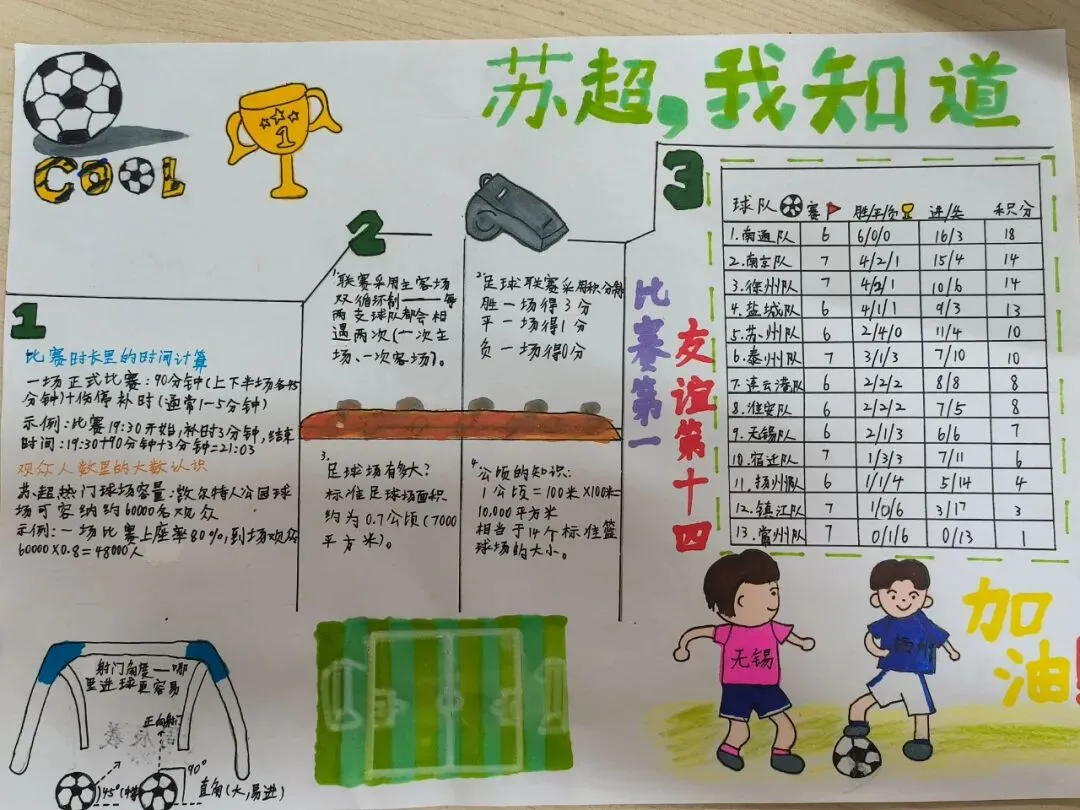 苏超,我知道
COOL
1
比赛时长里的时间计算
一场正式比赛:90分钟(上下半场各45
分钟)+伤停补时(通常1-5分钟)
示例:比赛19:30开始,补时3分钟,结束
时间:19:30+90分钟+3分钟=21:03
观众人数里的大数认识
苏超热门球场容量:敦尔特人公园球
场可容纳约60000名观众
示例:一场比赛上座率80%,到场观众
60000×0.8=48000人
2
1.联赛采用主客场
双循环制——每
两支球队都会相
遇两次(一次主
场、一次客场)。
2.足球联赛采用积分制
胜一场得3分
平一场得1分
负一场得0分
3.
足球场有多大?
标准足球场面积
约为0.7公顷(7000
平方米)。
4.公顷的知识:
1公顷=100米×100米=
10,000平方米
相当于14个标准篮
球场的大小。
比赛第一
友谊第十四
3
球队 赛 胜/平/负 进/失 积分
1.南通队 6 6/0/0 16/3 18
2.南京队 7 4/2/1 15/4 14
3.徐州队 7 4/2/1 10/6 14
4.盐城队 6 4/1/1 9/3 13
5.苏州队 6 2/4/0 11/4 10
6.泰州队 7 3/1/3 7/10 10
7.连云港队 6 2/2/2 8/8 8
8.淮安队 6 2/2/2 7/5 8
9.无锡队 6 2/1/3 6/6 7
10.宿迁队 7 1/3/3 7/11 6
11.扬州队 6 1/1/4 5/14 4
12.镇江队 7 1/0/6 3/17 3
13.常州队 7 0/1/6 0/13 1
射门角度——哪
里进球更容易
正向射门
45°
90°
直角(大,易进)
无锡
加油!